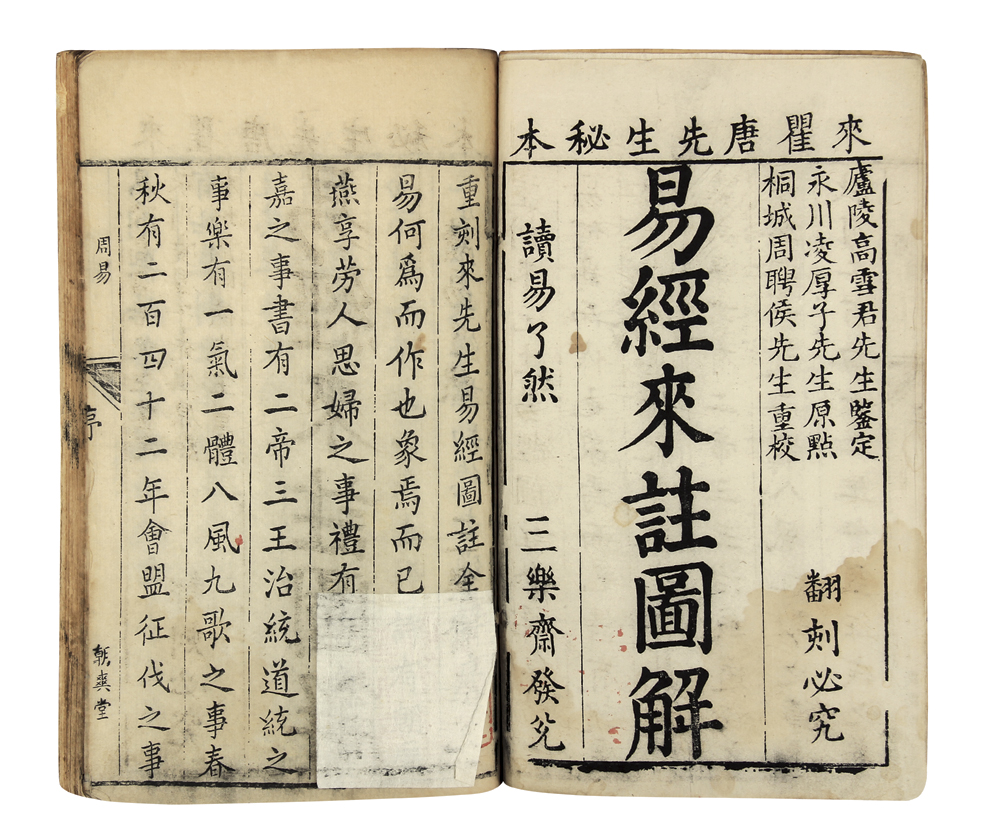 來瞿唐先生秘本
廬陵高雪君先生鑒定
永川凌厚子先生原點
桐城周聘侯先生重校
翻刻必究
易經來註圖解
讀易了然
三樂齋發兌
重刻來先生易經圖註全
易何爲而作也象焉而已
燕享勞人思婦之事禮有
嘉之事書有二帝三王治統道統之
事樂有一氣二體八風九歌之事春
秋有二百四十二年會盟征伐之事
周易
序
朝爽堂